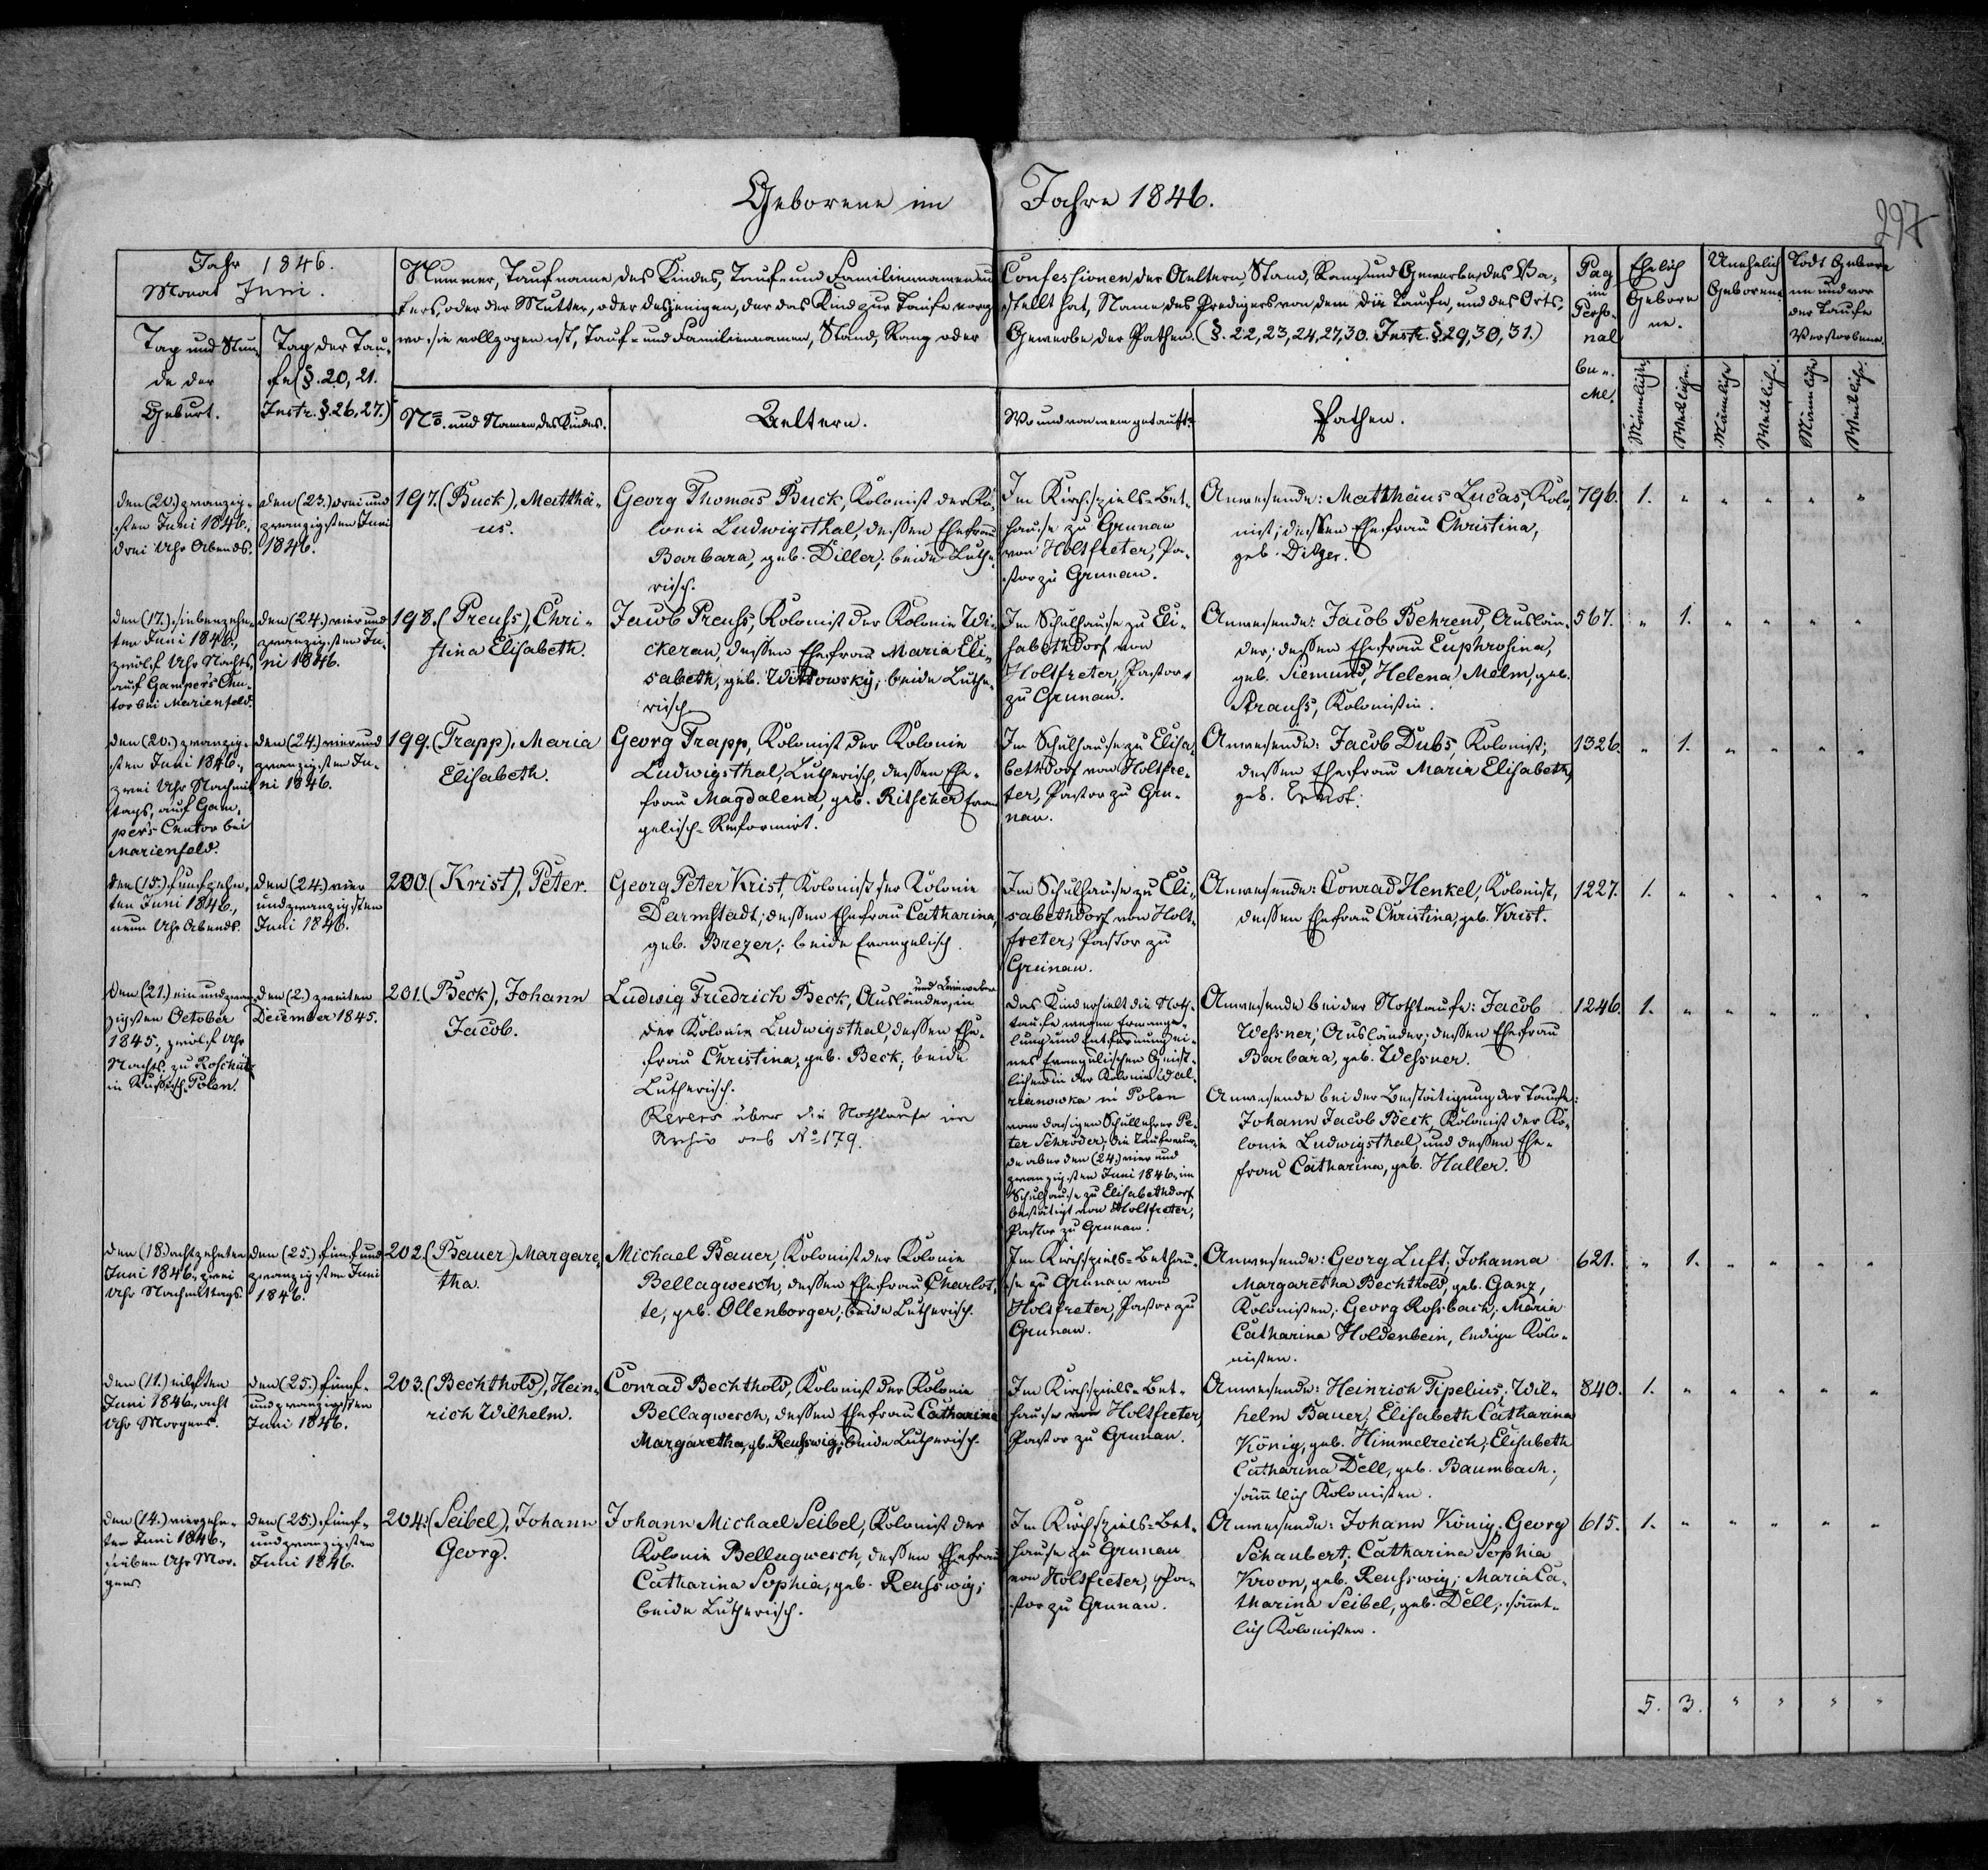 Geborene im Jahre 1846.
297
Jahr 1846.
Monat Juni.
Tag und Stun-
de der
Geburt.
Tag der Tau-
fe (§. 20, 21.
Instr. §. 26, 27.)
Nummer, Taufname des Kindes, Tauf- und Familiennamen und Confessionen der Aeltern, Stand, Rang und Gewerbe des Va-
ters, oder der Mutter, oder desjenigen, der das Kind zur Taufe vorge-stellt hat, Name des Predigers von dem die Taufe, und des Orts,
wo sie vollzogen ist, Tauf- und Familiennamen, Stand, Rang oder Gewerbe der Pathen. (§. 22, 23, 24, 27, 30. Instr. §. 29, 30, 31.)
No. und Namen des Kindes.
Aeltern.
Wo und von wem getauft?
Pathen.
Pag
im
Perso-
nal
bu-
che.
Ehelich
Gebore
ne.
Unehelich
Geborene
Todt Gebore
ne und vor
der Taufe
Verstorbene.
Männliche
Weibliche.
Männliche
Weibliche.
Männliche
Weibliche.
den (20.) zwanzig-
sten Juni 1846.,
drei Uhr Abends.
den (23.) drei und
zwanzigsten Juni
1846.
197. (Buck), Matthä-
us.
Georg Thomas Buck, Kolonist der Ko-
lonie Ludwigsthal, dessen Ehefrau
Barbara, geb. Diller; beide Luthe-
risch.
Im Kirchspiels-Bet-
hause zu Grunau
von Holtfreter, Pa-
stor zu Grunau.
Anwesende: Matthäus Lucas, Kolo-
nist; dessen Ehefrau Christina,
geb.
796. 1. " " " " "
den (17.) siebenzehn-
ten Juni 1846.,
zwölf Uhr Nachts,
auf Gamper's Chu-
tor bei Marienfeld.
den (24.) vier und
zwanzigsten Ju-
ni 1846.
198. (Preuss), Chri-
stina Elisabeth.
Jacob Preuss, Kolonist der Kolonie Wi-
ckerau, dessen Ehefrau Maria Eli-
sabeth, geb. Wittowsky; beide Luthe-
risch.
Im Schulhause zu Eli-
sabethdorf von
Holtfreter, Pastor
zu Grunau.
Anwesende: Jacob Behrend, Auslän-
der; dessen Ehefrau Euphrosina,
geb. Siemund, Helena Melm, geb.
Strauss, Kolonistin.
567. " 1. " " " "
den (20.) zwanzig-
sten Juni 1846.,
zwei Uhr Nachmit
tags, auf Gam-
per's Chutor bei
Marienfeld.
den (24.) vier und
zwanzigsten Ju-
ni 1846.
199. (Trapp), Maria
Elisabeth.
Georg Trapp, Kolonist der Kolonie
Ludwigsthal, Lutherisch, dessen Ehe-
frau Magdalena, geb. Ritscher Evan
gelisch-Reformirt.
Im Schulhause zu Elisa-
bethdorf von Holtfre-
ter, Pastor zu Gru-
nau.
Anwesende: Jacob Dubs, Kolonist;
dessen Ehefrau Maria Elisabeth,
geb. Ernst.
1326. " 1. " " " "
den (15.) funfzehn-
ten Juni 1846.,
neun Uhr Abends.
den (24.) vier
und zwanzigsten
Juni 1846.
200. (Krist), Peter.
Georg Peter Krist, Kolonist der Kolonie
Darmstadt; dessen Ehefrau Catharina,
geb. Brezer; beide Evangelisch.
Im Schulhause zu Eli-
sabethdorf von Holt-
freter, Pastor zu
Grunau.
Anwesende: Conrad Henkel, Kolonist,
dessen Ehefrau Christina, geb. Krist.
1227. 1. " " " " "
den (21.) ein und zwan-
zigsten October
1845., zwölf Uhr
Nachts, zu Roschütz
in Russisch-Polen.
den (2.) zweiten
December 1845.
201. (Beck), Johann
Jacob.
und Leinweber
Ludwig Friedrich Beck, Ausländer, in
der Kolonie Ludwigsthal, dessen Ehe-
frau Christina, geb. Beck; beide
Lutherisch.
Revers über die Nothtaufe im
Archiv sub No 179.
Das Kind erhielt die Noth-
taufe wegen Ermange-
lung und Entfernung ei-
nes Evangelischen Geist-
lichen in der Kolonie Wal-
rianowka in Polen
vom dasigen Schullehrer Pe-
ter Schröder; die Taufe wur-
de aber den (24.) vier und
zwanzigsten Juni 1846. im
Schulhause zu Elisabethdorf
bestätigt von Holtfreter,
Pastor zu Grunau.
Anwesende bei der Nothtaufe: Jacob
Wessner, Ausländer; dessen Ehefrau
Barbara, geb. Wessner.
Anwesende bei der Bestätigung der Taufe:
Johann Jacob Beck, Kolonist der Ko-
lonie Ludwigsthal, und dessen Ehe-
frau Catharina, geb. Haller.
1246. 1. " " " " "
den (18.) achtzehnten
Juni 1846., zwei
Uhr Nachmittags.
den (25.) fünf und
zwanzigsten Juni
1846.
202. (Bauer) Margare-
tha.
Michael Bauer, Kolonist der Kolonie
Bellagwesch, dessen Ehefrau Charlot-
te, geb. Ollenborger; beide Lutherisch.
Im Kirchspiels-Bethau-
se zu Grunau von
Holtfreter, Pastor zu
Grunau.
Anwesende: Georg Luft; Johanna
Margaretha Bechthold, geb. Ganz,
Kolonisten; Georg Rossbach; Maria
Catharina Holdenbein, ledige Kolo-
nisten.
621. " 1. " " " "
den (11.) eilften
Juni 1846., acht
Uhr Morgens.
den (25.) fünf-
und zwanzigsten
Juni 1846.
203. (Bechthold), Hein-
rich Wilhelm.
Conrad Bechthold, Kolonist der Kolonie
Bellagwesch, dessen Ehefrau Catharina
Margaretha, gb. Reusswig; beide Lutherisch.
Im Kirchspiels-Bet-
hause von Holtfreter,
Pastor zu Grunau.
Anwesende: Heinrich Tipelius; Wil-
helm Bauer; Elisabeth Catharina
König, geb. Himmelreich; Elisabeth
Catharina Dell, geb. Baumbach;
sämtlich Kolonisten.
840. 1. " " " " "
den (14.) vierzehn-
ten Juni 1846.,
sieben Uhr Mor-
gens.
den (25.) fünf-
und zwanzigsten
Juni 1846.
204. (Seibel), Johann
Georg.
Johann Michael Seibel, Kolonist der
Kolonie Bellagwesch, dessen Ehefrau
Catharina Sophia, geb. Reusswig;
beide Lutherisch.
Im Kirchspiels-Bet-
hause zu Grunau
von Holtfreter, Pa-
stor zu Grunau.
Anwesende: Johann König; Georg
Schaubert; Catharina Sophia
Kroon, geb. Reusswig; Maria Ca-
tharina Seibel, geb. Dell; sämmt-
lich Kolonisten.
615. 1. " " " " "
5. 3. " " " "